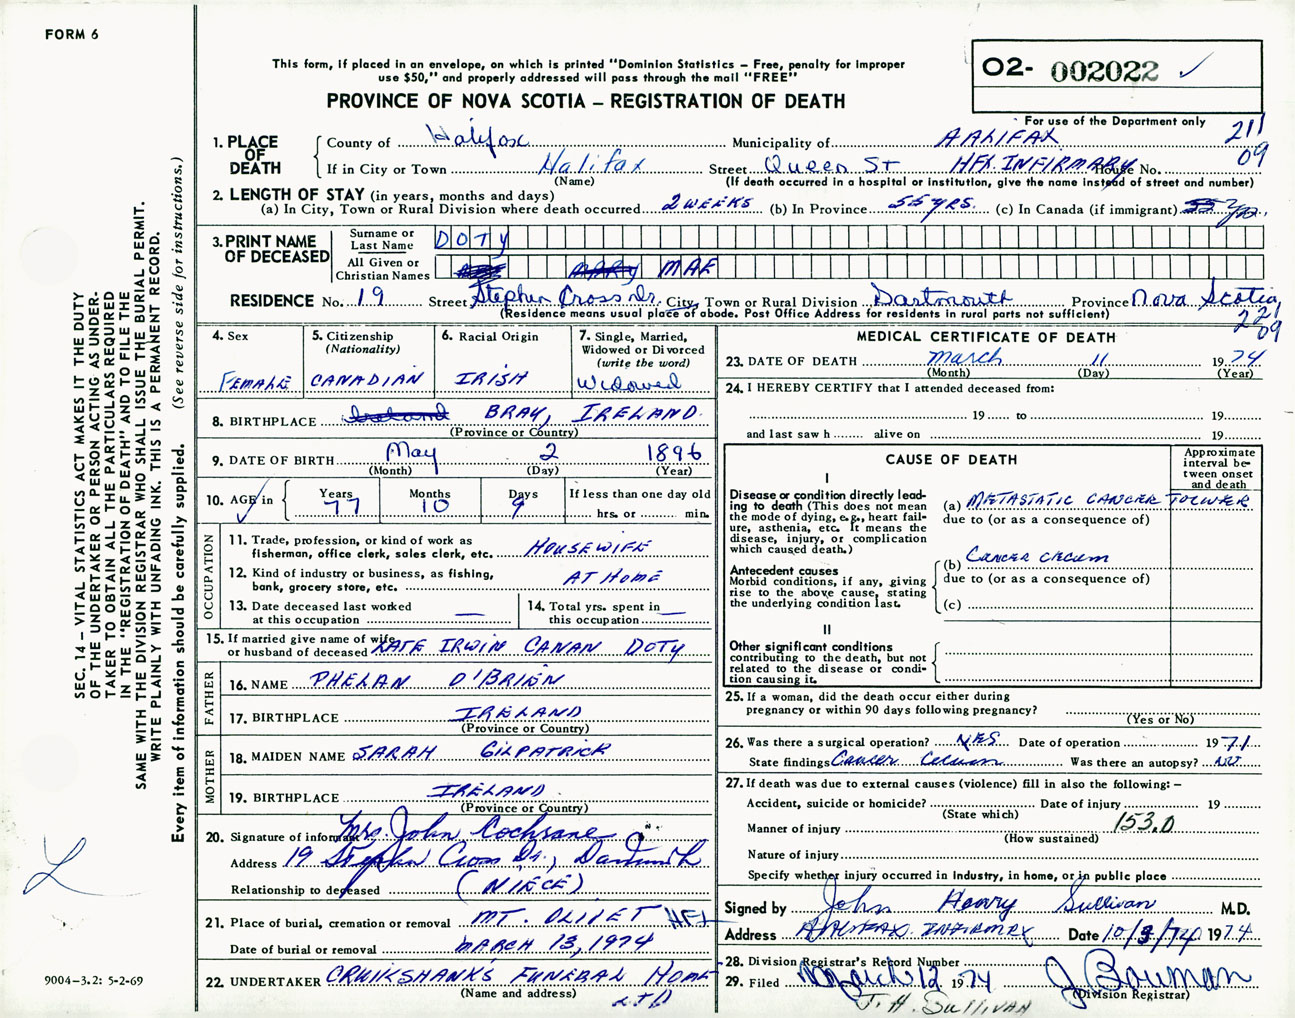 FORM 6
This form, if placed in an envelope, on which is printed "Dominion Statistics – Free, penalty for improper
use $50," and properly addressed will pass through the mail "FREE"
PROVINCE OF NOVA SCOTIA – REGISTRATION OF DEATH
O2- 002022 ✓
For use of the Department only
211
09
1. PLACE OF DEATH
County of Halifax Municipality of HALIFAX
If in City or Town Halifax Street Queen St HFX. INFIRMARY House No.
(Name) (If death occurred in a hospital or institution, give the name instead of street and number)
2. LENGTH OF STAY (in years, months and days)
(a) In City, Town or Rural Division where death occurred 2 WEEKS (b) In Province 55 YRS. (c) In Canada (if immigrant)
3. PRINT NAME OF DECEASED
Surname or Last Name DOTY
All Given or Christian Names MARY MAE
RESIDENCE No. 19 Street Stephen Cross Dr. City, Town or Rural Division Dartmouth Province Nova Scotia
(Residence means usual place of abode. Post Office Address for residents in rural parts not sufficient)
221
09
4. Sex FEMALE
5. Citizenship (Nationality) CANADIAN
6. Racial Origin IRISH
7. Single, Married, Widowed or Divorced (write the word) Widowed
8. BIRTHPLACE Ireland BRAY, IRELAND.
(Province or Country)
9. DATE OF BIRTH May 2 1896
(Month) (Day) (Year)
10. AGE in Years 77 Months 10 Days 9 If less than one day old
hrs. or min.
OCCUPATION
11. Trade, profession, or kind of work as fisherman, office clerk, sales clerk, etc. HOUSEWIFE
12. Kind of industry or business, as fishing, bank, grocery store, etc. AT HOME
13. Date deceased last worked at this occupation —
14. Total yrs. spent in this occupation —
15. If married give name of wife or husband of deceased LATE IRWIN CANAN DOTY
FATHER
16. NAME PHELAN O'BRIEN
17. BIRTHPLACE IRELAND
(Province or Country)
MOTHER
18. MAIDEN NAME SARAH GILPATRICK
19. BIRTHPLACE IRELAND.
(Province or Country)
20. Signature of informant Mrs. John Cochrane
Address 19 Stephen Cross Dr., Dartmouth
Relationship to deceased (NIECE)
21. Place of burial, cremation or removal MT. OLIVET HFX
Date of burial or removal MARCH 13, 1974
22. UNDERTAKER CRUIKSHANK'S FUNERAL HOME
(Name and address) LTD
MEDICAL CERTIFICATE OF DEATH
23. DATE OF DEATH March 11 1974
(Month) (Day) (Year)
24. I HEREBY CERTIFY that I attended deceased from:
19 to 19
and last saw h alive on 19
CAUSE OF DEATH
Approximate interval between onset and death
I
Disease or condition directly leading to death (This does not mean the mode of dying, e.g., heart failure, asthenia, etc. It means the disease, injury, or complication which caused death.)
(a) METASTATIC CANCER TO LIVER
due to (or as a consequence of)
Antecedent causes
Morbid conditions, if any, giving rise to the above cause, stating the underlying condition last.
(b) CANCER CECUM
due to (or as a consequence of)
(c)
II
Other significant conditions
contributing to the death, but not related to the disease or condition causing it.
25. If a woman, did the death occur either during
pregnancy or within 90 days following pregnancy?
(Yes or No)
26. Was there a surgical operation? YES Date of operation 1971
State findings Cancer Cecum Was there an autopsy? NO
27. If death was due to external causes (violence) fill in also the following: –
Accident, suicide or homicide? Date of injury 19
(State which)
Manner of injury 153.0
(How sustained)
Nature of injury
Specify whether injury occurred in industry, in home, or in public place
Signed by John Henry Sullivan M.D.
Address HALIFAX INFIRMARY Date 10/3/74 1974
28. Division Registrar's Record Number
29. Filed March 12 1974 J Bowman
(Division Registrar)
J. H. SULLIVAN
SEC. 14 – VITAL STATISTICS ACT MAKES IT THE DUTY
OF THE UNDERTAKER OR PERSON ACTING AS UNDER-
TAKER TO OBTAIN ALL THE PARTICULARS REQUIRED
IN THE "REGISTRATION OF DEATH" AND TO FILE THE
SAME WITH THE DIVISION REGISTRAR WHO SHALL ISSUE THE BURIAL PERMIT.
WRITE PLAINLY WITH UNFADING INK. THIS IS A PERMANENT RECORD.
Every item of information should be carefully supplied. (See reverse side for instructions.)
9004-3.2: 5-2-69